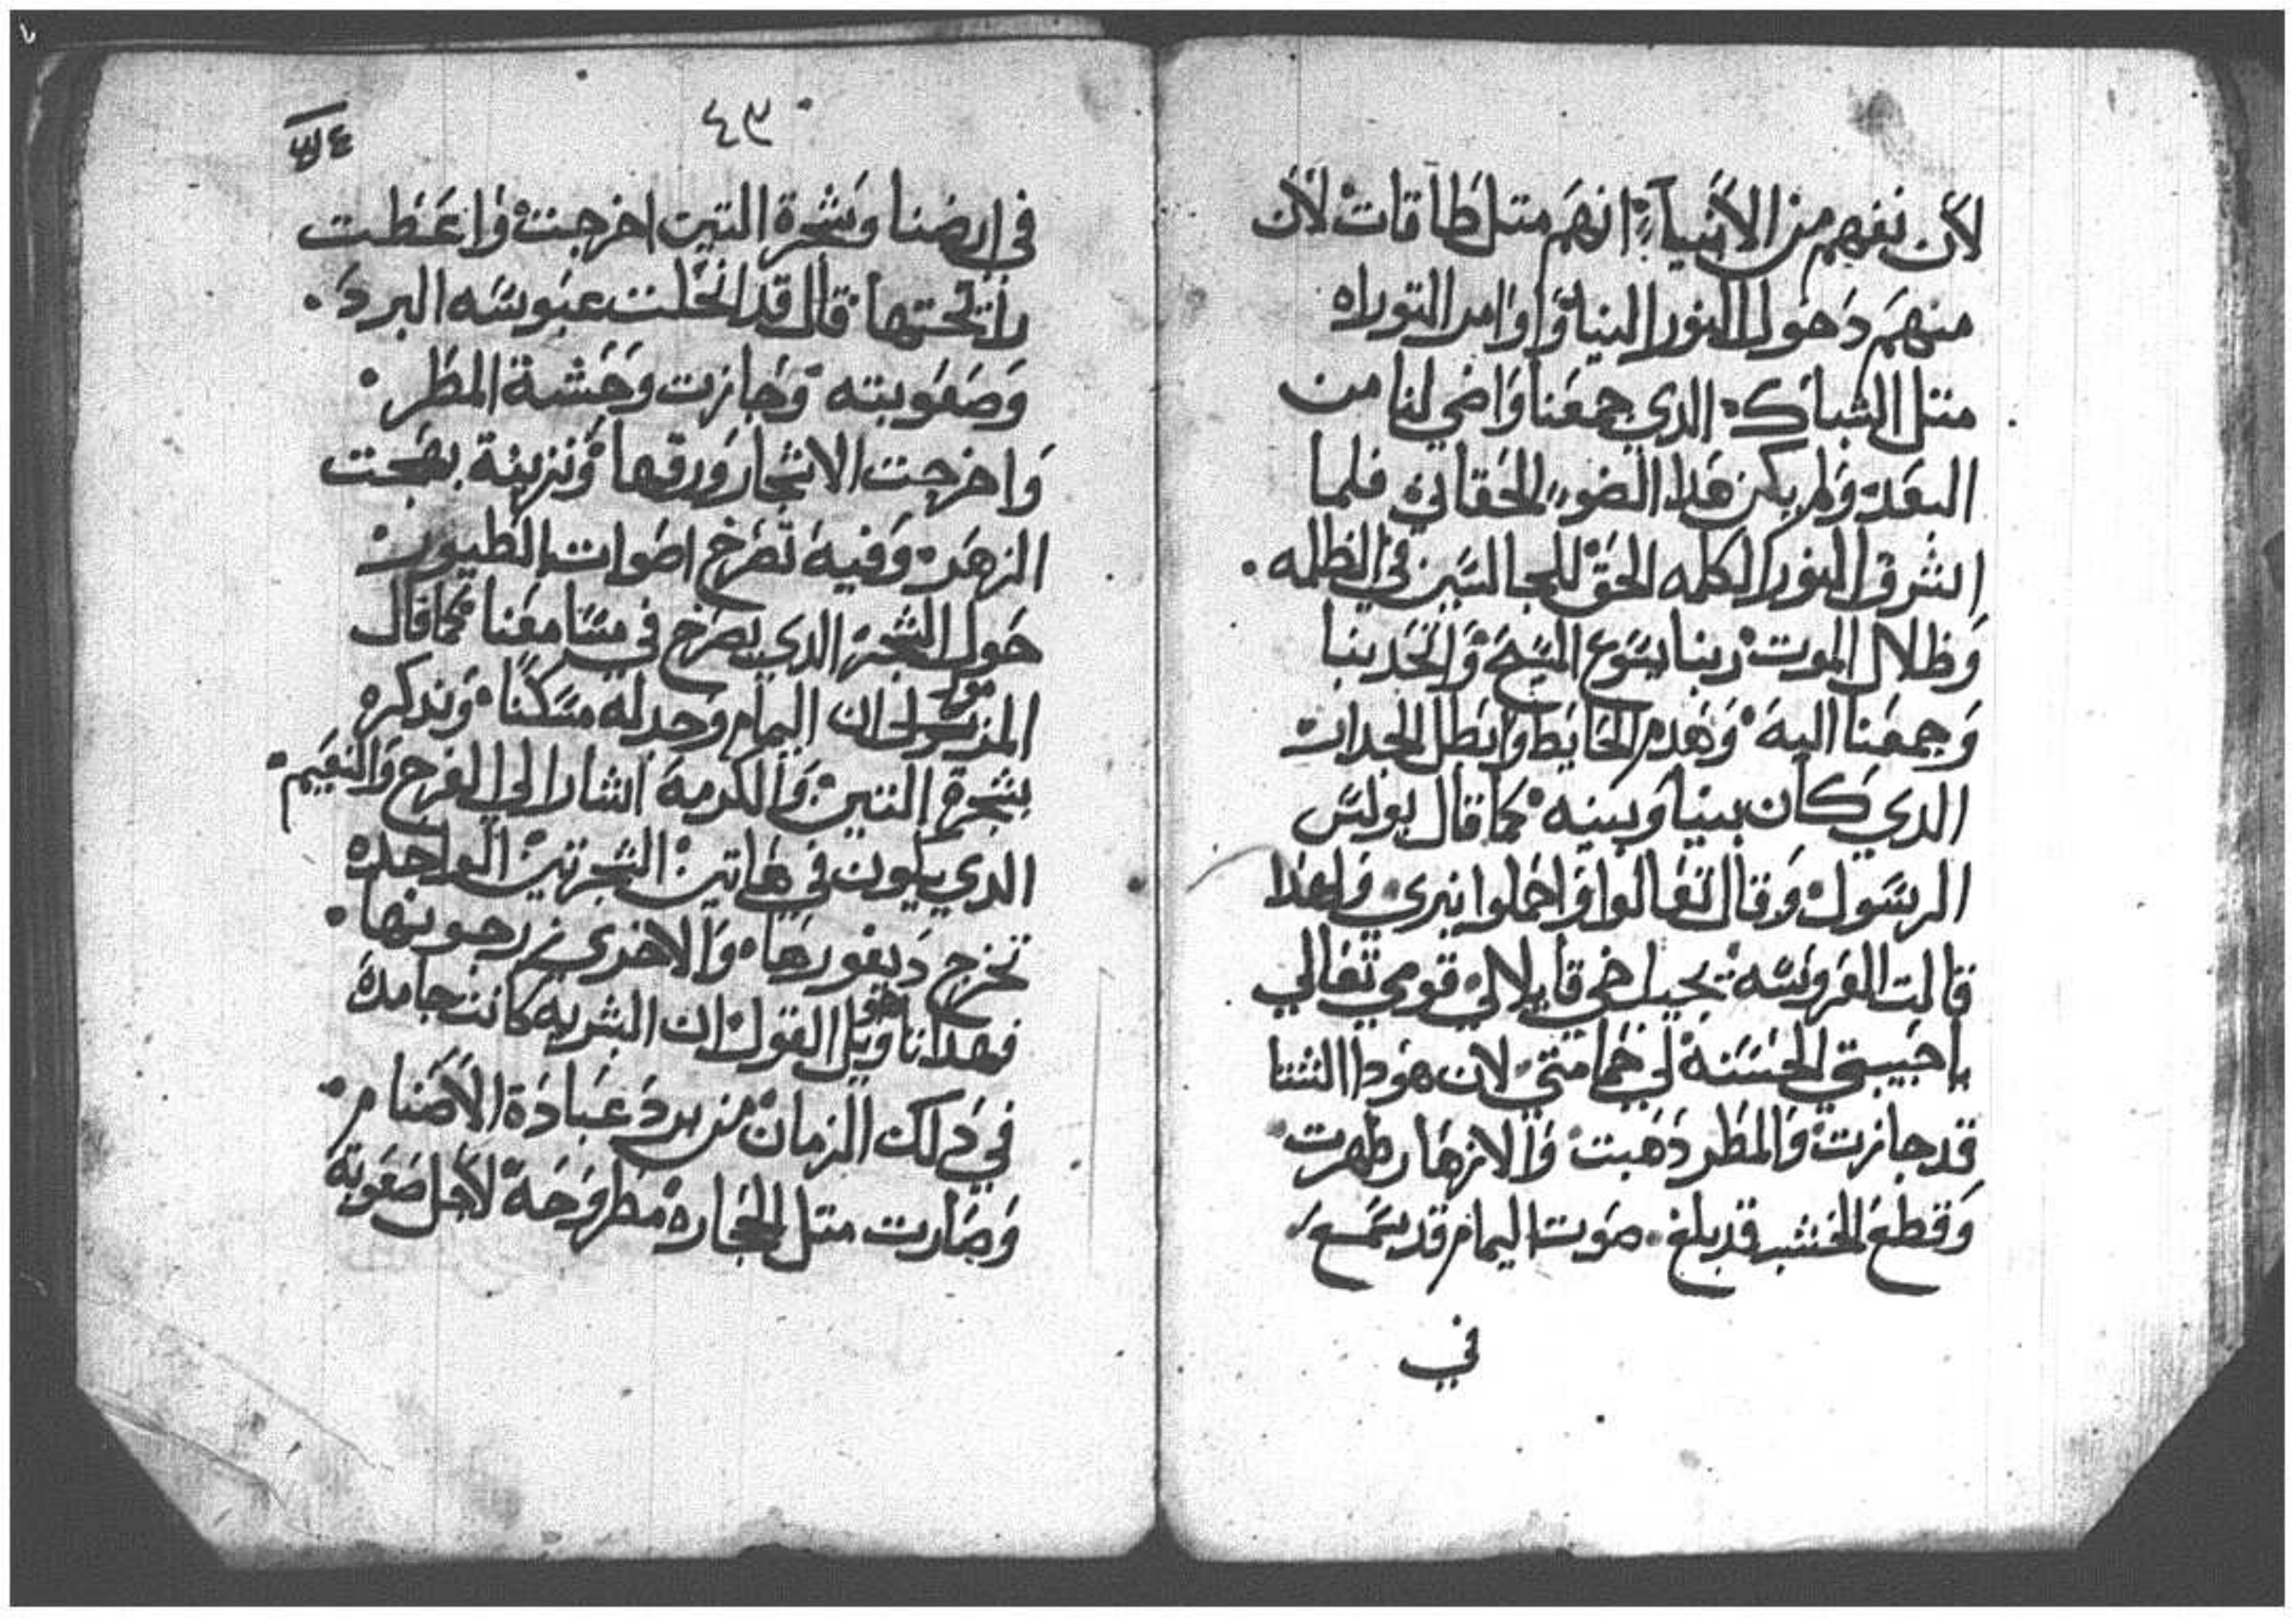 لأن نفهم من الأنبيآء انهم متل طآقات لأن
منهم دخول النور الينا واوامر التوراه
متل الشباك الدي جمعنا واضي لنا من
البعد ولم يكن هدا الضوء الحقاني فلما
اشرق النور الكلمه الحق للجالسين في الظلمه .
وظلال الموت ربنا يسوع المسيح واتحد بنا
وجمعنا اليه وهدم الحايط وابطل الجدات
الدي كان بينا وبينه كما قال بولس
الرسول وقال تعالوا واحملوا نيري ولهدا
قالت العروسه يجيل خي قايلا لي قومي تعالي
يا حبيبتي الحسنه لي حمامتي لان هودا الشتا
قد جازت والمطر دهبت والازهار ظهرت
وقطع الخشب قد بلغ . صوت اليمام قد سمع
في
٤٣
في ارضنا وشجرة التين اخرجت واعطت
رائحتها قال قد انحلت عبوسه البرد .
وصعوبته وجازت وحشة المطر .
واخرجت الاشجار ورقها ونزينة بهجت
الزهر وفيه تصرخ اصوات الطيور
حول الشجر الدي يصرخ في مسامعنا كما قال
المزمور ان اليمام وجد له مسكنا وندكره
بشجرة التين والكرمة اشار الي الفرح والنعيم .
الدي يكون في هاتين الشجرتين الواحده
تخرج ديفورها والاخري زرجونها .
فهدا هو تاويل القول ان البشريه كانت جامده
في دلك الزمان من برد عبادة الأصنام .
وصارت متل الحجاره مطروحة لأجل صعوبة